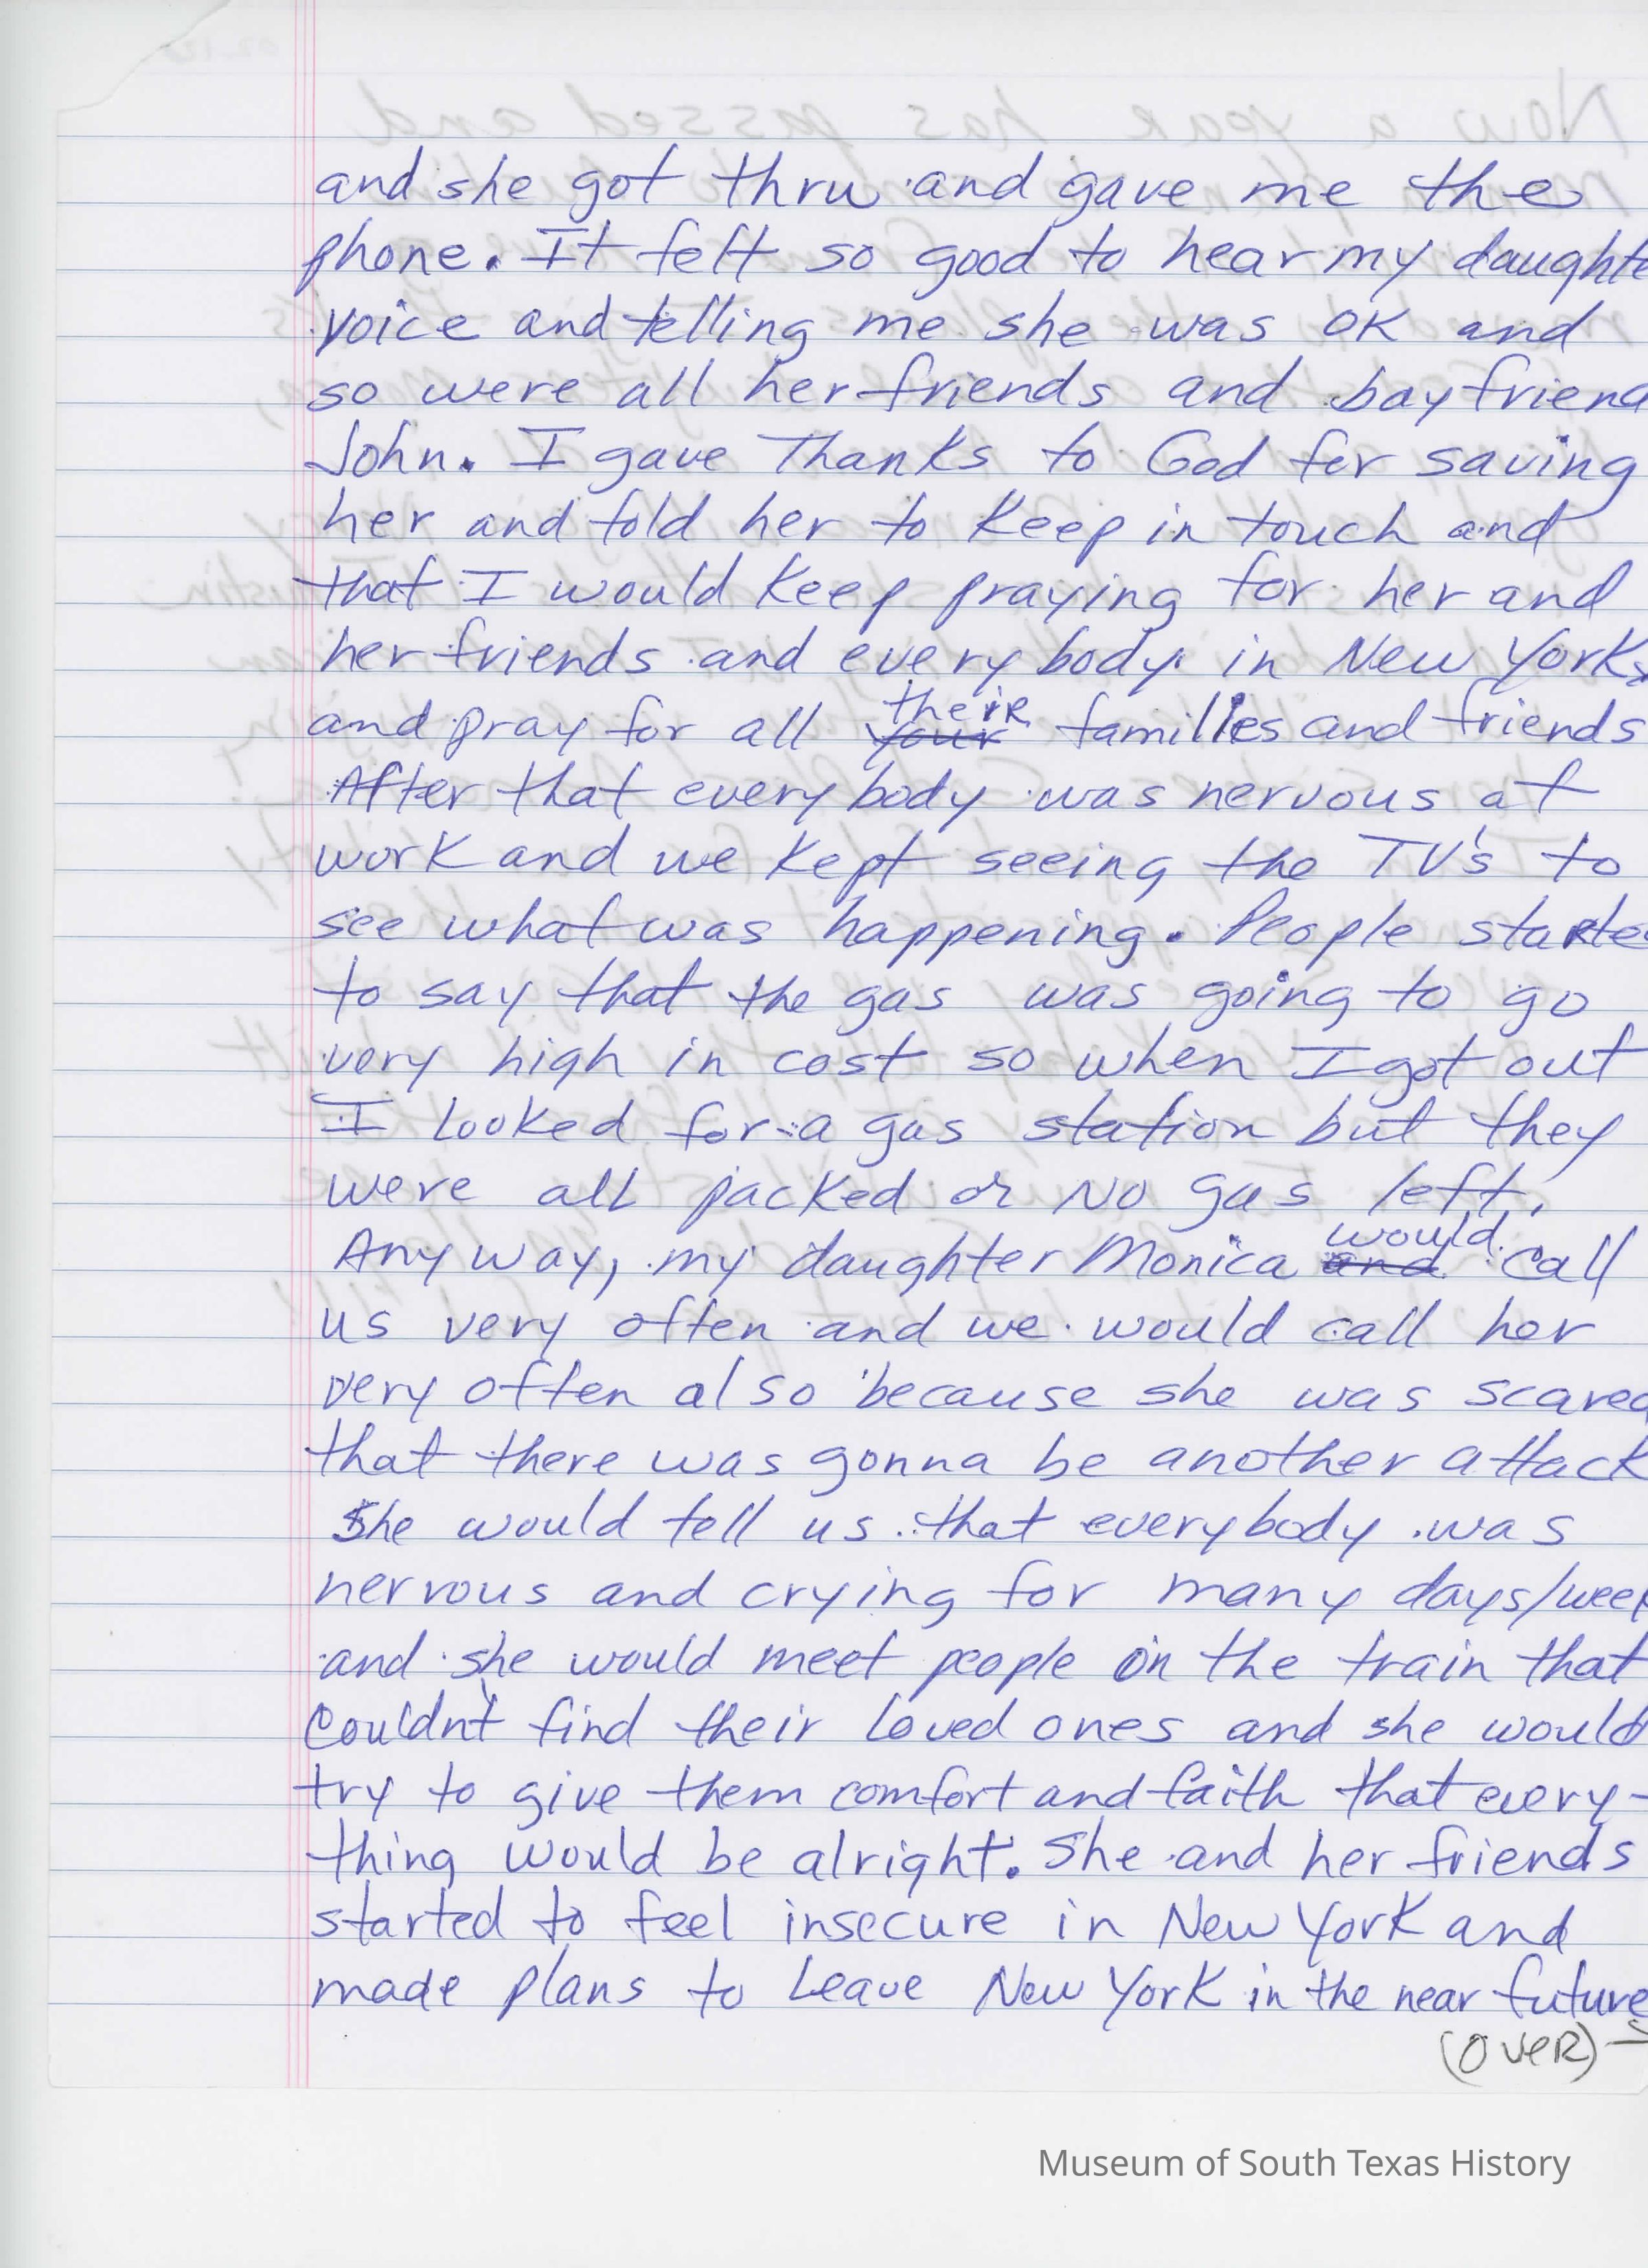 and she got thru and gave me the
phone. It felt so good to hear my daughte
voice and telling me she was OK and
so were all her friends and boyfriend
John. I gave Thanks to God for saving
her and told her to keep in touch and
that I would keep praying for her and
her friends and everybody in New York,
and pray for all your their families and friends
After that everybody was nervous at
work and we kept seeing the TV's to
see what was happening. People starte
to say that the gas was going to go
very high in cost so when I got out
I looked for a gas station but they
were all packed or no gas left.
Anyway, my daughter Monica and would call
us very often and we would call her
very often also because she was scared
that there was gonna be another attack
She would tell us that everybody was
nervous and crying for many days/week
and she would meet people on the train that
couldn't find their loved ones and she would
try to give them comfort and faith that every-
thing would be alright. She and her friends
started to feel insecure in New York and
made plans to leave New York in the near future
(OVER)→
Museum of South Texas History